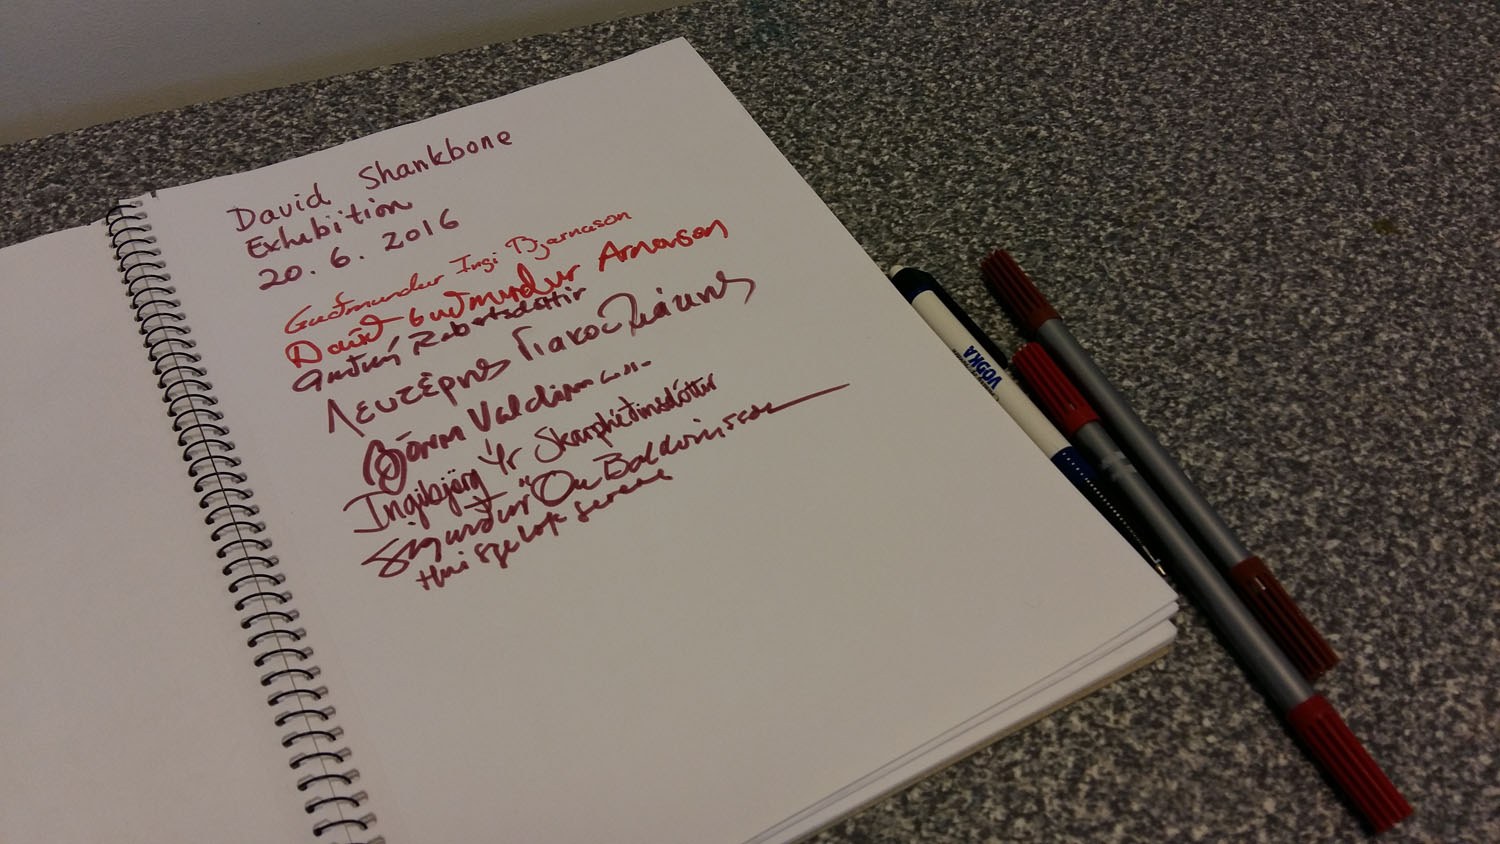 David Shankbone
Exhibition
20. 6. 2016
Guðmundur Ingi Bjarnason
Davíð Guðmundur Arnarson
Guðný Robertsdóttir
Λευτέρης Γιακουμάκης
Björn Valdimarsson
Ingibjörg Ýr Skarphéðinsdóttir
Sigurður Örn Baldvinsson
VODKA